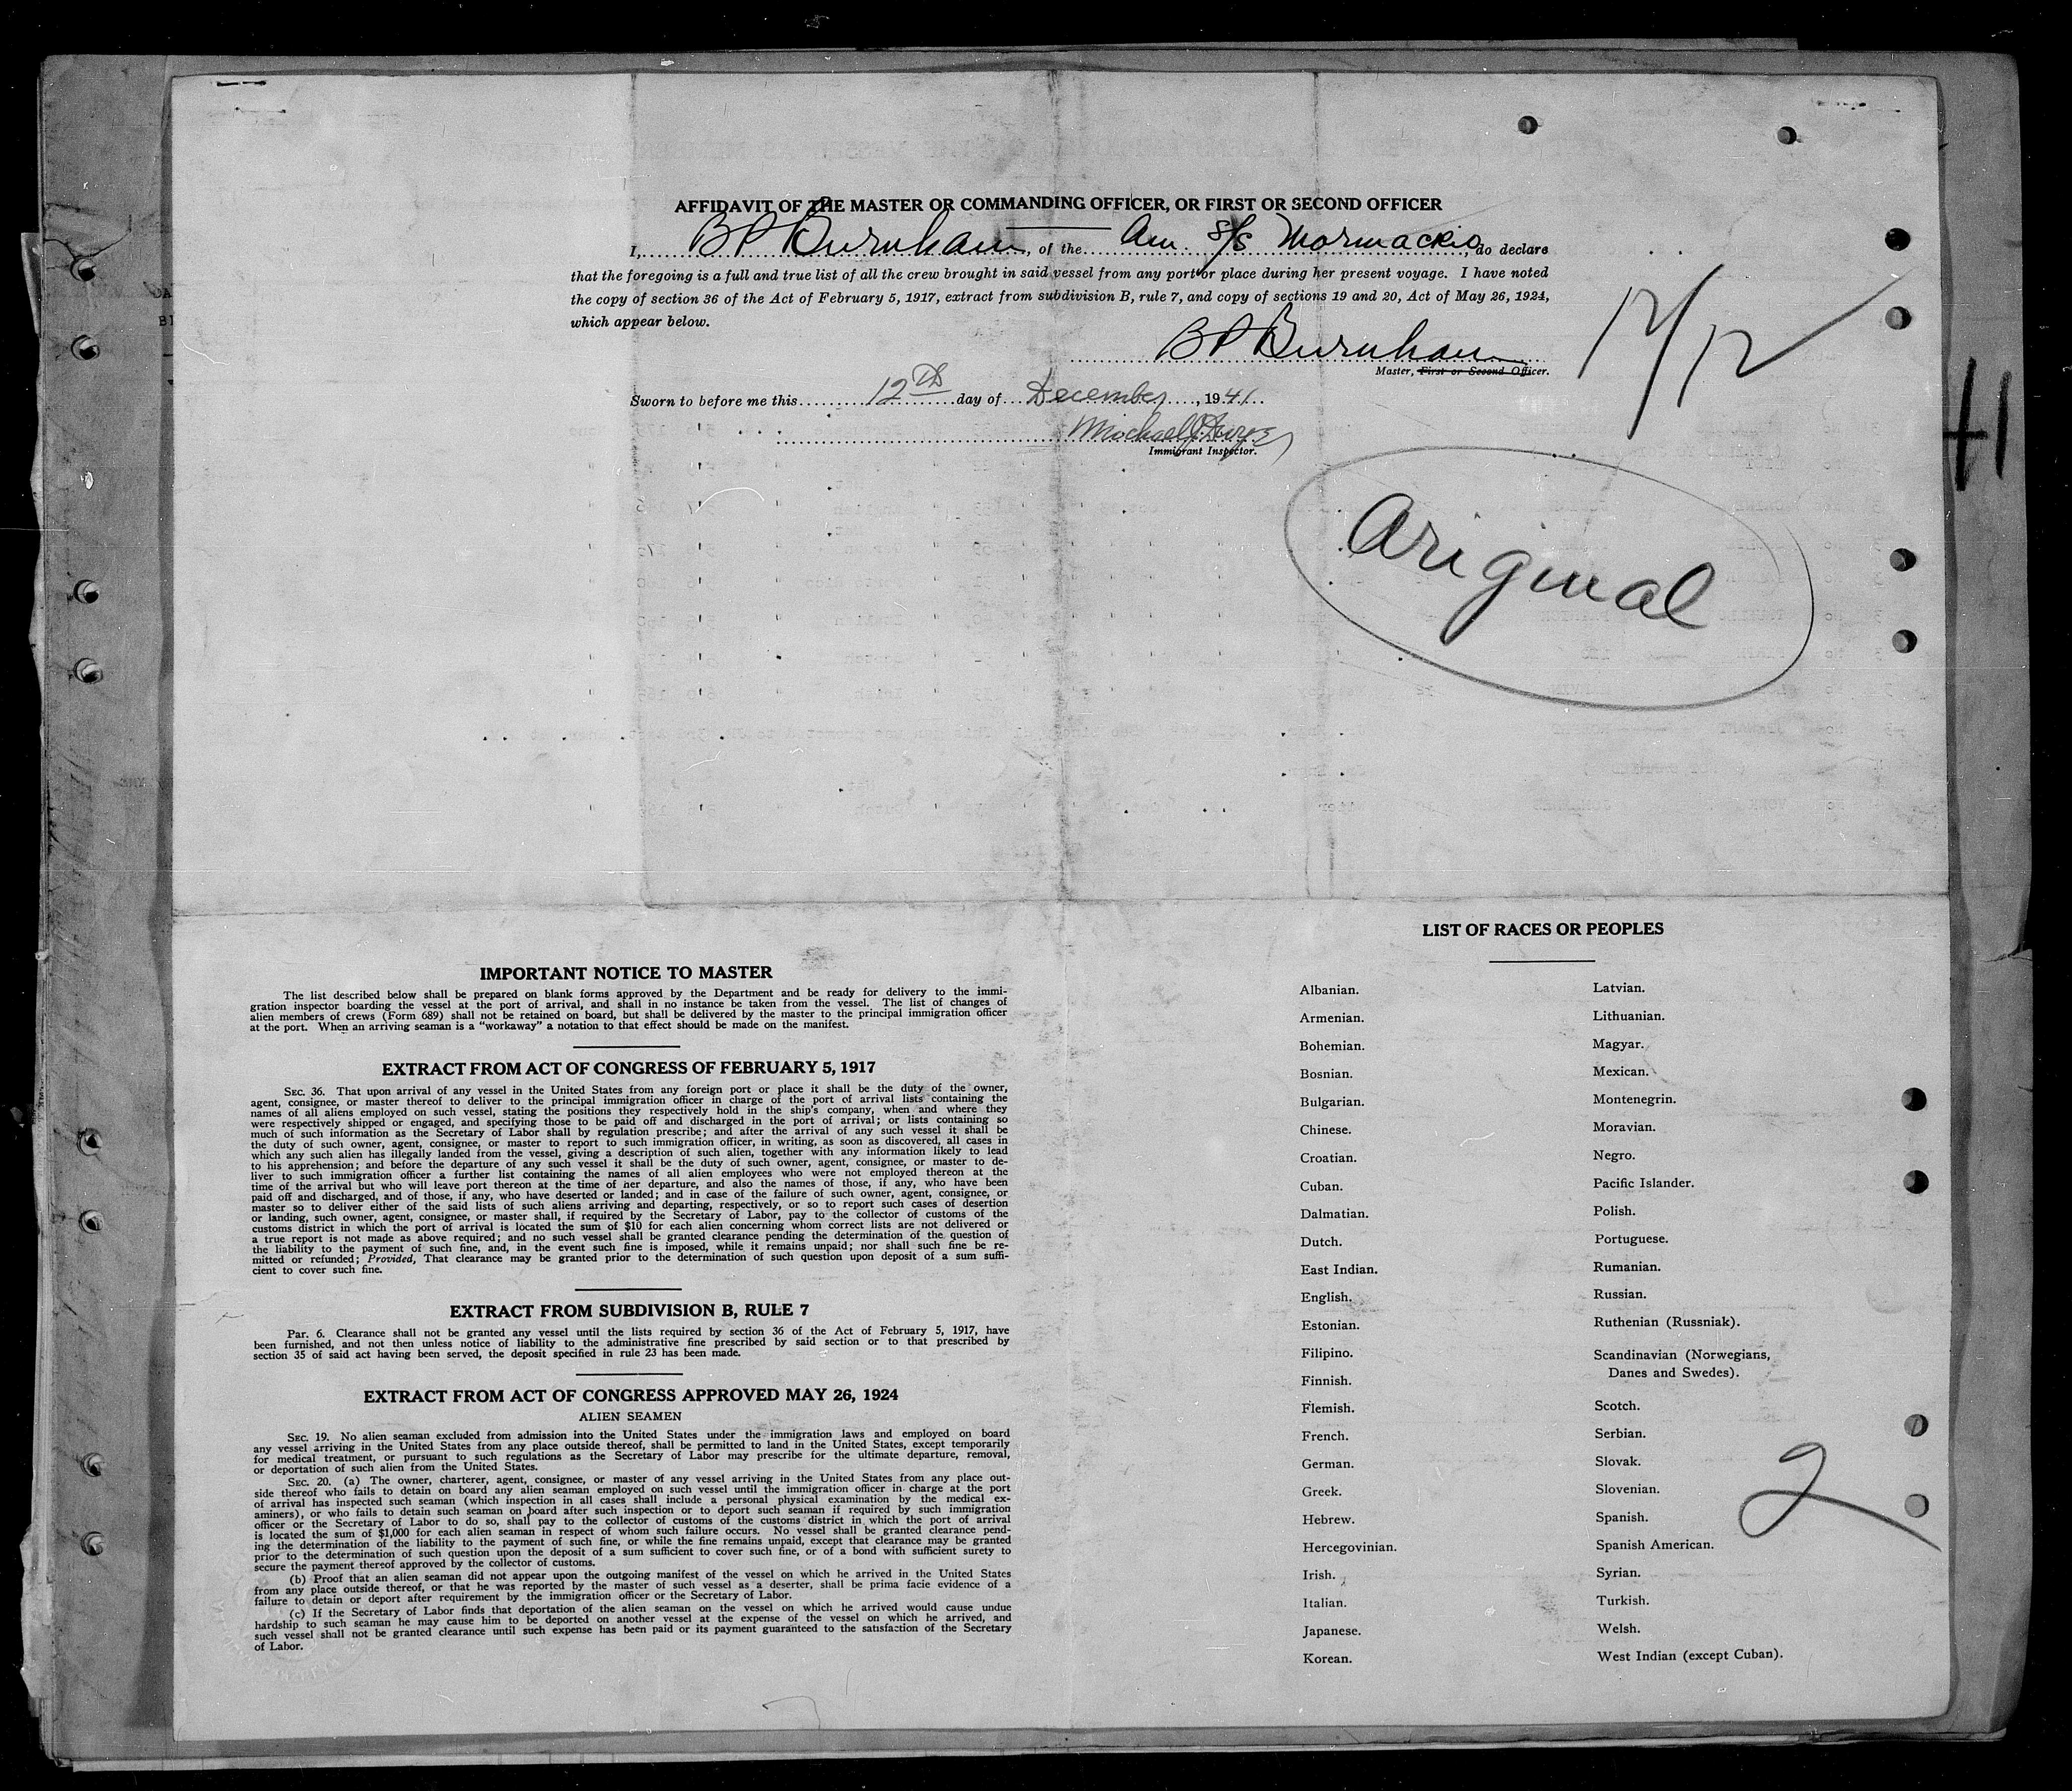 AFFIDAVIT OF THE MASTER OR COMMANDING OFFICER, OR FIRST OR SECOND OFFICER
I, B P Burnham, of the Am. S/S Mormacrio, do declare
that the foregoing is a full and true list of all the crew brought in said vessel from any port or place during her present voyage. I have noted
the copy of section 36 of the Act of February 5, 1917, extract from subdivision B, rule 7, and copy of sections 19 and 20, Act of May 26, 1924,
which appear below.
B P Burnham
Master, First or Second Officer.
12/12
Sworn to before me this 12th day of December, 1941.
Michael
Immigrant Inspector.
41
Original
IMPORTANT NOTICE TO MASTER
The list described below shall be prepared on blank forms approved by the Department and be ready for delivery to the immi-
gration inspector boarding the vessel at the port of arrival, and shall in no instance be taken from the vessel. The list of changes of
alien members of crews (Form 689) shall not be retained on board, but shall be delivered by the master to the principal immigration officer
at the port. When an arriving seaman is a "workaway" a notation to that effect should be made on the manifest.
EXTRACT FROM ACT OF CONGRESS OF FEBRUARY 5, 1917
SEC. 36. That upon arrival of any vessel in the United States from any foreign port or place it shall be the duty of the owner,
agent, consignee, or master thereof to deliver to the principal immigration officer in charge of the port of arrival lists containing the
names of all aliens employed on such vessel, stating the positions they respectively hold in the ship's company, when and where they
were respectively shipped or engaged, and specifying those to be paid off and discharged in the port of arrival; or lists containing so
much of such information as the Secretary of Labor shall by regulation prescribe; and after the arrival of any such vessel it shall be
the duty of such owner, agent, consignee, or master to report to such immigration officer, in writing, as soon as discovered, all cases in
which any such alien has illegally landed from the vessel, giving a description of such alien, together with any information likely to lead
to his apprehension; and before the departure of any such vessel it shall be the duty of such owner, agent, consignee, or master to de-
liver to such immigration officer a further list containing the names of all alien employees who were not employed thereon at the
time of the arrival but who will leave port thereon at the time of her departure, and also the names of those, if any, who have been
paid off and discharged, and of those, if any, who have deserted or landed; and in case of the failure of such owner, agent, consignee, or
master so to deliver either of the said lists of such aliens arriving and departing, respectively, or so to report such cases of desertion
or landing, such owner, agent, consignee, or master shall, if required by the Secretary of Labor, pay to the collector of customs of the
customs district in which the port of arrival is located the sum of $10 for each alien concerning whom correct lists are not delivered or
a true report is not made as above required; and no such vessel shall be granted clearance pending the determination of the question of
the liability to the payment of such fine, and, in the event such fine is imposed, while it remains unpaid; nor shall such fine be re-
mitted or refunded; Provided, That clearance may be granted prior to the determination of such question upon deposit of a sum suffi-
cient to cover such fine.
EXTRACT FROM SUBDIVISION B, RULE 7
Par. 6. Clearance shall not be granted any vessel until the lists required by section 36 of the Act of February 5, 1917, have
been furnished, and not then unless notice of liability to the administrative fine prescribed by said section or to that prescribed by
section 35 of said act having been served, the deposit specified in rule 23 has been made.
EXTRACT FROM ACT OF CONGRESS APPROVED MAY 26, 1924
ALIEN SEAMEN
SEC. 19. No alien seaman excluded from admission into the United States under the immigration laws and employed on board
any vessel arriving in the United States from any place outside thereof, shall be permitted to land in the United States, except temporarily
for medical treatment, or pursuant to such regulations as the Secretary of Labor may prescribe for the ultimate departure, removal,
or deportation of such alien from the United States.
SEC. 20. (a) The owner, charterer, agent, consignee, or master of any vessel arriving in the United States from any place out-
side thereof who fails to detain on board any alien seaman employed on such vessel until the immigration officer in charge at the port
of arrival has inspected such seaman (which inspection in all cases shall include a personal physical examination by the medical ex-
aminers), or who fails to detain such seaman on board after such inspection or to deport such seaman if required by such immigration
officer or the Secretary of Labor to do so, shall pay to the collector of customs of the customs district in which the port of arrival
is located the sum of $1,000 for each alien seaman in respect of whom such failure occurs. No vessel shall be granted clearance pend-
ing the determination of the liability to the payment of such fine, or while the fine remains unpaid, except that clearance may be granted
prior to the determination of such question upon the deposit of a sum sufficient to cover such fine, or of a bond with sufficient surety to
secure the payment thereof approved by the collector of customs.
(b) Proof that an alien seaman did not appear upon the outgoing manifest of the vessel on which he arrived in the United States
from any place outside thereof, or that he was reported by the master of such vessel as a deserter, shall be prima facie evidence of a
failure to detain or deport after requirement by the immigration officer or the Secretary of Labor.
(c) If the Secretary of Labor finds that deportation of the alien seaman on the vessel on which he arrived would cause undue
hardship to such seaman he may cause him to be deported on another vessel at the expense of the vessel on which he arrived, and
such vessel shall not be granted clearance until such expense has been paid or its payment guaranteed to the satisfaction of the Secretary
of Labor.
LIST OF RACES OR PEOPLES
Albanian.
Armenian.
Bohemian.
Bosnian.
Bulgarian.
Chinese.
Croatian.
Cuban.
Dalmatian.
Dutch.
East Indian.
English.
Estonian.
Filipino.
Finnish.
Flemish.
French.
German.
Greek.
Hebrew.
Hercegovinian.
Irish.
Italian.
Japanese.
Korean.
Latvian.
Lithuanian.
Magyar.
Mexican.
Montenegrin.
Moravian.
Negro.
Pacific Islander.
Polish.
Portuguese.
Rumanian.
Russian.
Ruthenian (Russniak).
Scandinavian (Norwegians,
Danes and Swedes).
Scotch.
Serbian.
Slovak.
Slovenian.
Spanish.
Spanish American.
Syrian.
Turkish.
Welsh.
West Indian (except Cuban).
2